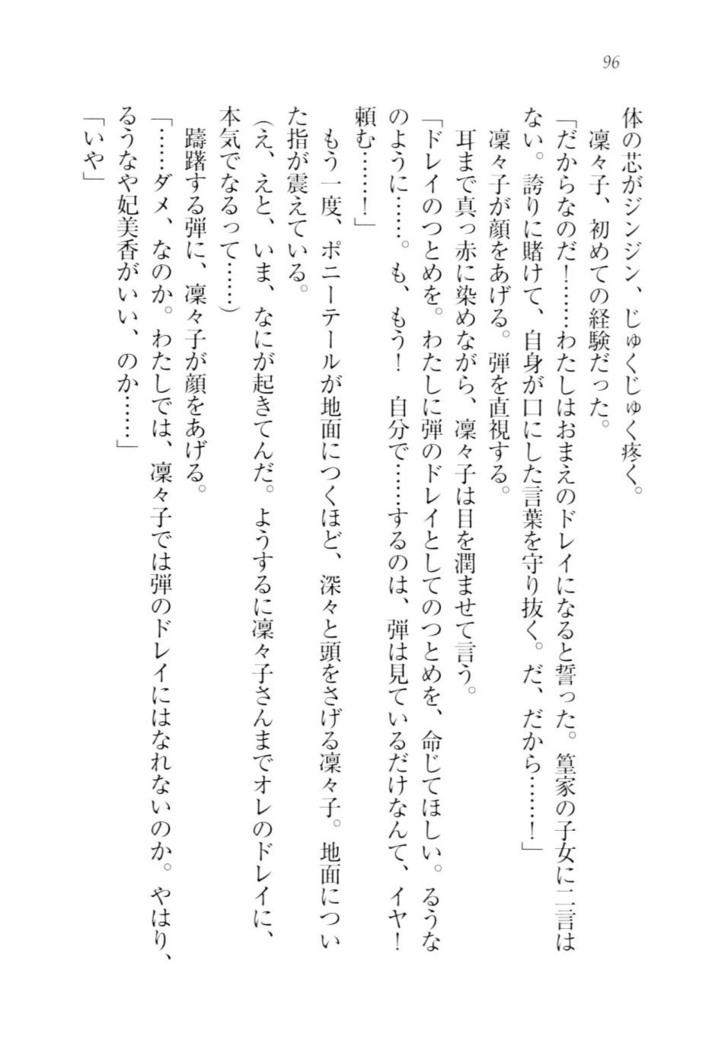 96
体の芯がジンジン、じゅくじゅく疼く。
凜々子、初めての経験だった。
「だからなのだ！……わたしはおまえのドレイになると誓った。篁家の子女に二言は
ない。誇りに賭けて、自身が口にした言葉を守り抜く。だ、だから……！」
凜々子が顔をあげる。弾を直視する。
耳まで真っ赤に染めながら、凜々子は目を潤ませて言う。
「ドレイのつとめを。わたしに弾のドレイとしてのつとめを、命じてほしい。るうな
のように……。も、もう！　自分で……するのは、弾は見ているだけなんて、イヤ！
頼む……！」
もう一度、ポニーテールが地面につくほど、深々と頭をさげる凜々子。地面につい
た指が震えている。
（え、えと、いま、なにが起きてんだ。ようするに凜々子さんまでオレのドレイに、
本気でなるって……）
躊躇する弾に、凜々子が顔をあげる。
「……ダメ、なのか。わたしでは、凜々子では弾のドレイにはなれないのか。やはり、
るうなや妃美香がいい、のか……」
「いや」